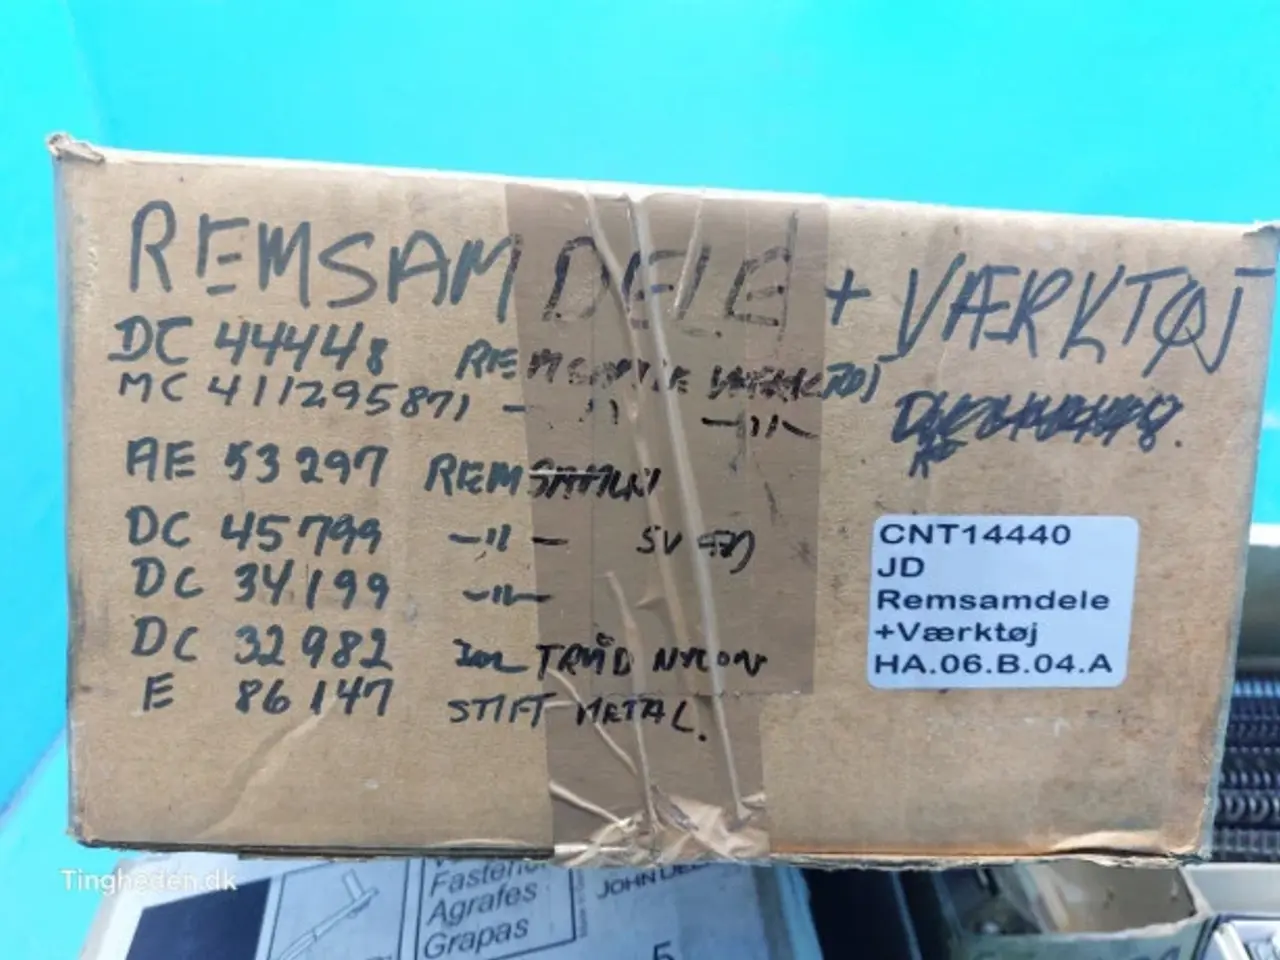 REMSAMDELE + VÆRKTØJ
DC 44448 REMSAMLE VÆRKTØJ
MC 411295871 - " -"-
AE 53297 REMSAMLNI
DC 45799 -"- SVÆR
DC 34199 -"-
DC 32982 TRÅD NYLON
E 86147 STIFT METAL.
CNT14440
JD
Remsamdele
+Værktøj
HA.06.B.04.A
Tingheden.dk
Agrafes
Grapas
JOHN
5